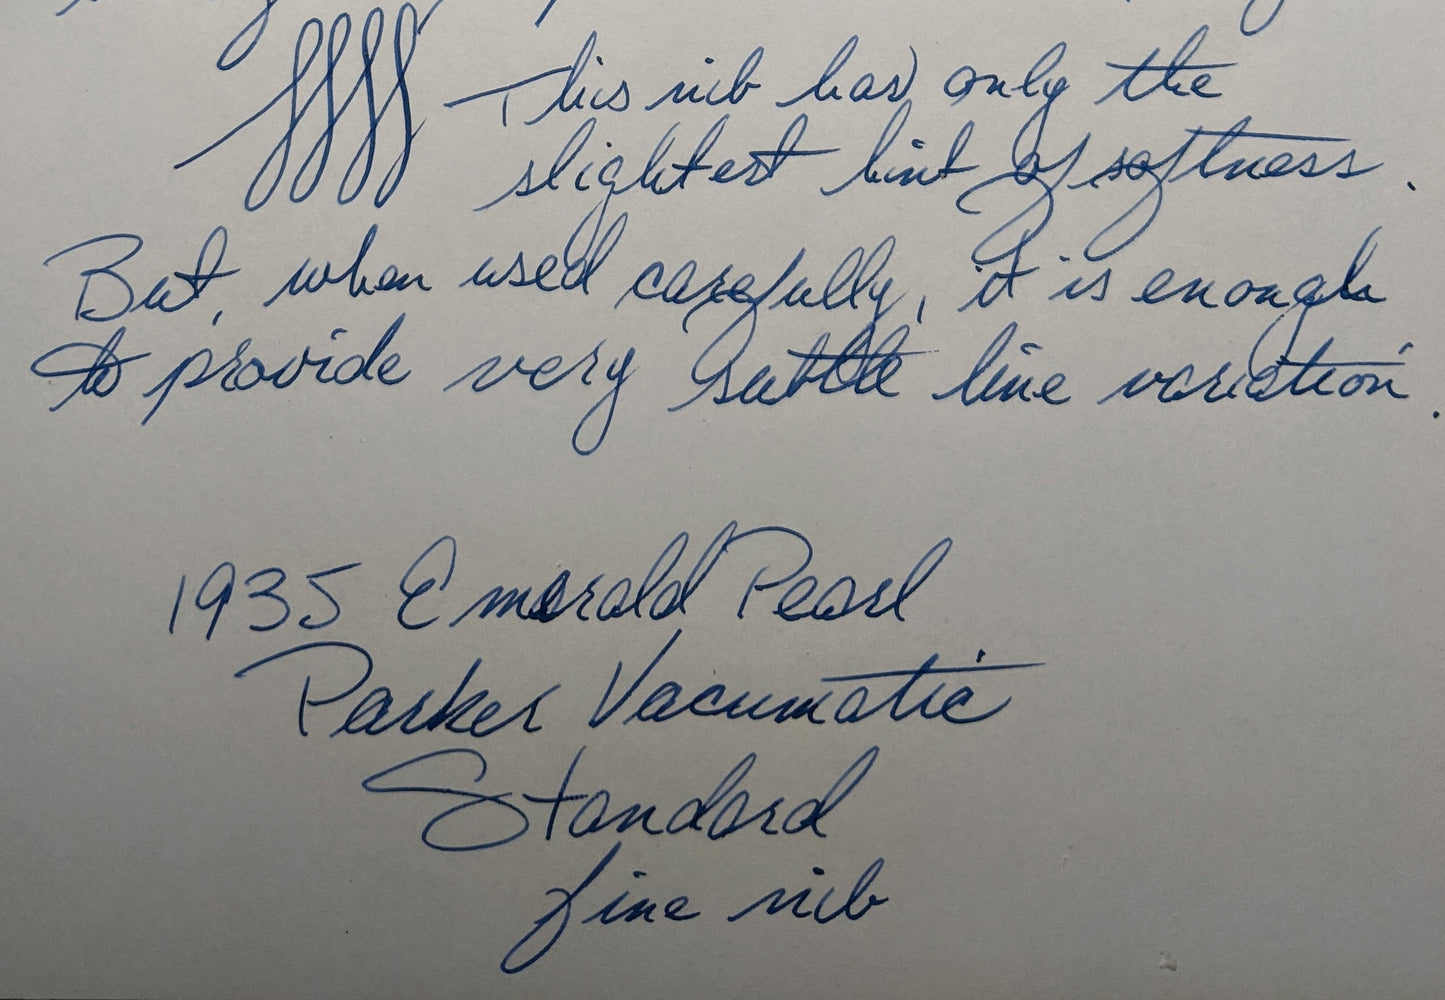 ffff This nib has only the
slightest hint of softness.
But, when used carefully, it is enough
to provide very subtle line variation.
1935 Emerald Pearl
Parker Vacumatic
Standard
fine nib